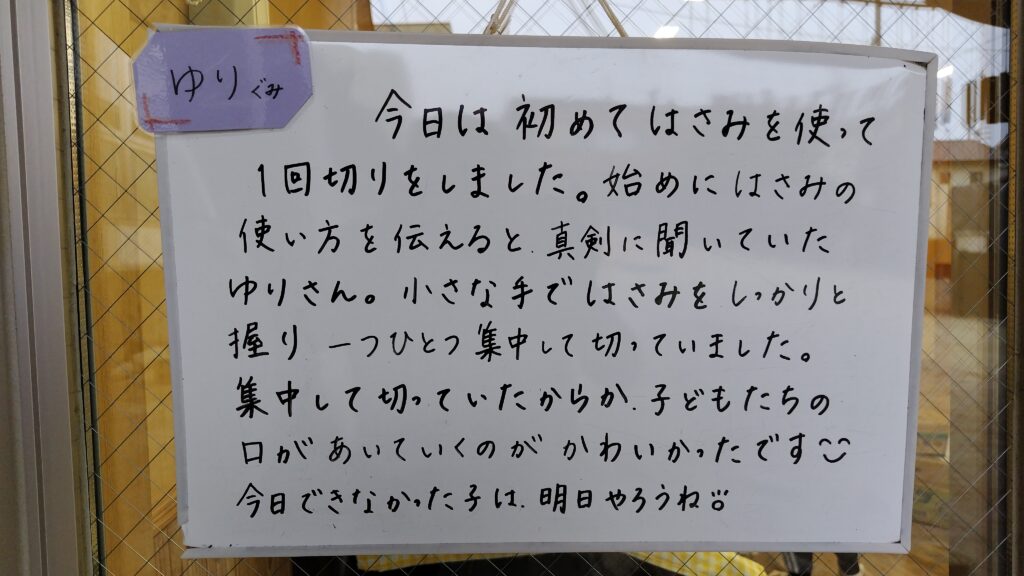 ゆりぐみ
今日は初めてはさみを使って
1回切りをしました。始めにはさみの
使い方を伝えると、真剣に聞いていた
ゆりさん。小さな手ではさみをしっかりと
握り 一つひとつ集中して切っていました。
集中して切っていたからか、子どもたちの
口があいていくのがかわいかったです
今日できなかった子は、明日やろうね